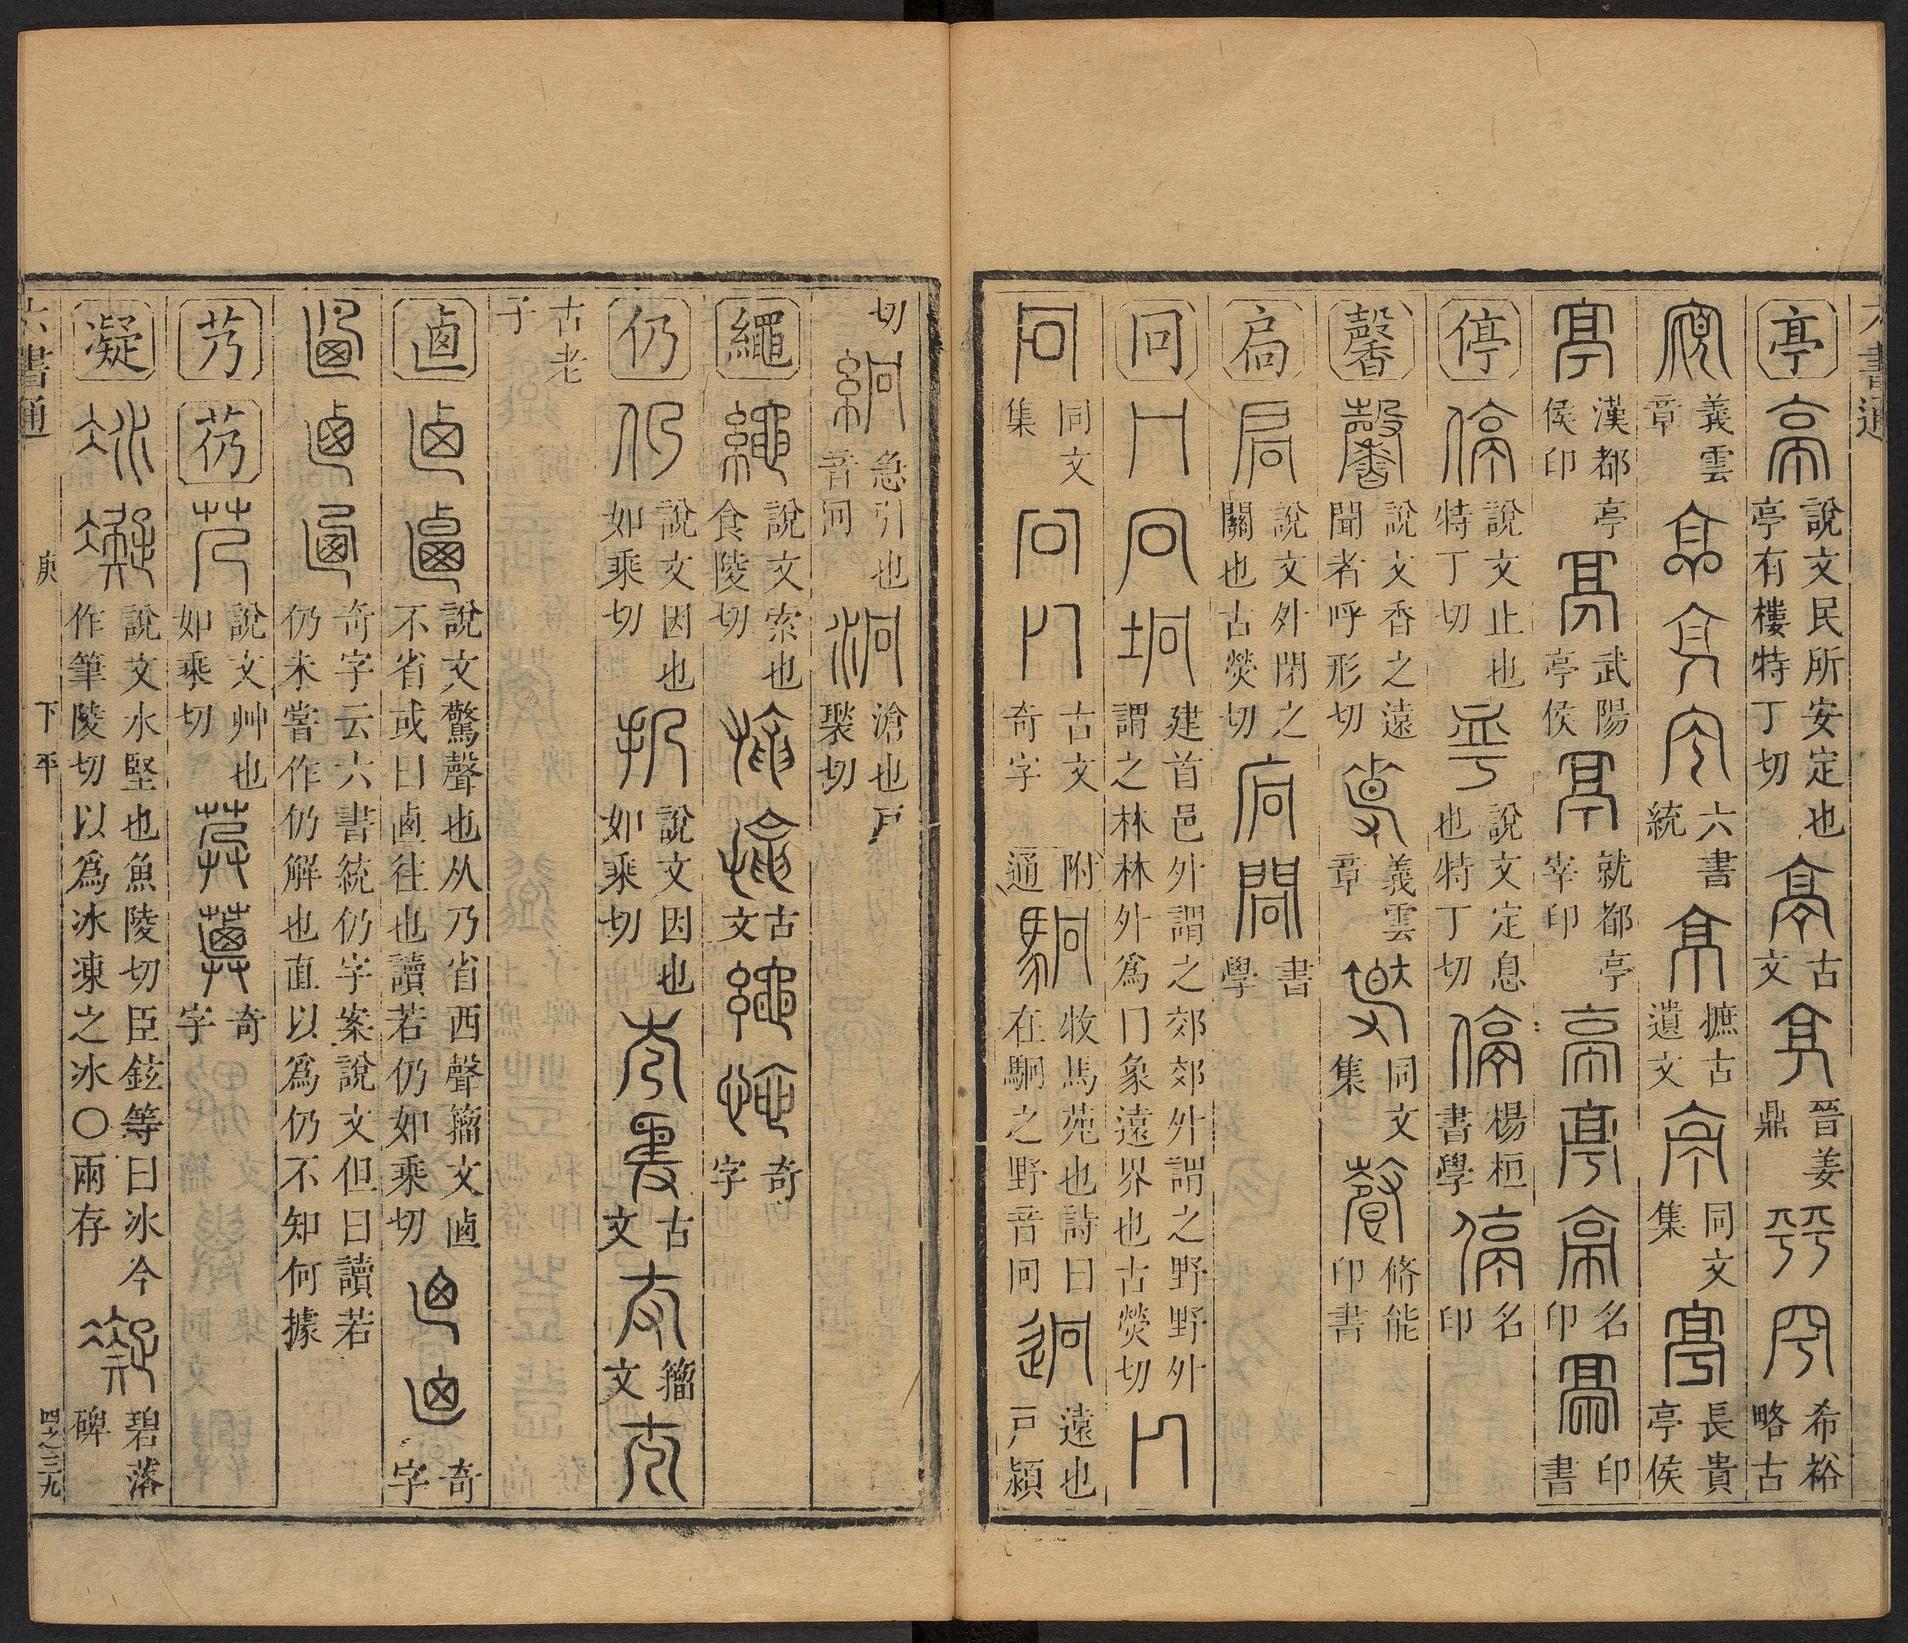 六書通
亭 說文民所安定也亭有樓特丁切 古文 晉姜鼎 希裕略古
義雲章 六書統 摭古遺文 同文集 長貴亭侯
漢都亭侯印 武陽亭侯 就都亭宰印 名印 印書
停 說文止也特丁切 說文定息也特丁切 楊桓書學 名印
馨 說文香之遠聞者呼形切 義雲章 同文集 脩能印書
扃 說文外閉之關也古熒切 書學
冋 建首邑外謂之郊郊外謂之野野外謂之林林外爲冂象遠界也古熒切
同文集 古文奇字 附通 駉 牧馬苑也詩曰在駉之野音同 迥 遠也戶潁
切 絅 急引也音冋 泂 滄也戶褧切
繩 說文索也食陵切 古文 奇字
仍 說文因也如乘切 扔 說文因也如乘切 古文 籀文
古老子
鹵 說文驚聲也从乃省西聲籀文鹵不省或曰鹵往也讀若仍如乘切 奇字
奇字云六書統仍字案說文但曰讀若仍未嘗作仍解也直以爲仍不知何據
艿 芿 說文艸也如乘切 奇字
凝 說文水堅也魚陵切臣鉉等曰冰今作筆陵切以爲冰凍之冰○兩存 碧落碑
六書通 庚 下平 四之三九